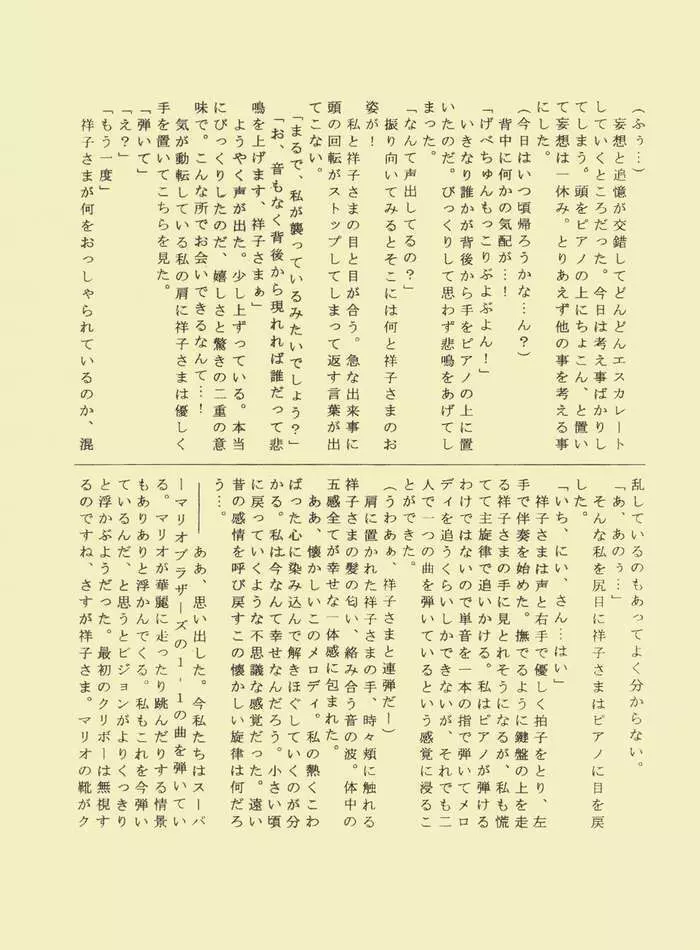 (ふぅ…)
　妄想と追憶が交錯してどんどんエスカレート
していくところだった。今日は考え事ばかりし
てしまう。頭をピアノの上にちょこん、と置い
て妄想は一休み。とりあえず他の事を考える事
にした。
(今日はいつ頃帰ろうかな…ん？)
　背中に何かの気配が…！
「げべちゅんもっこりぶよぶよん！」
　いきなり誰かが背後から手をピアノの上に置
いたのだ。びっくりして思わず悲鳴をあげてし
まった。
「なんて声出してるの？」
　振り向いてみるとそこには何と祥子さまのお
姿が！
　私と祥子さまの目と目が合う。急な出来事に
頭の回転がストップしてしまって返す言葉が出
てこない。
「まるで、私が襲っているみたいでしょう？」
「お、音もなく背後から現れれば誰だって悲
鳴を上げます、祥子さまぁ」
　ようやく声が出た。少し上ずっている。本当
にびっくりしたのだ、嬉しさと驚きの二重の意
味で。こんな所でお会いできるなんて…！
　気が動転している私の肩に祥子さまは優しく
手を置いてこちらを見た。
「弾いて」
「え？」
「もう一度」
　祥子さまが何をおっしゃられているのか、混
乱しているのもあってよく分からない。
「あ、あのぅ…」
　そんな私を尻目に祥子さまはピアノに目を戻
した。
「いち、にい、さん…はい」
　祥子さまは声と右手で優しく拍子をとり、左
手で伴奏を始めた。撫でるように鍵盤の上を走
る祥子さまの手に見とれそうになるが、私も慌
てて主旋律で追いかける。私はピアノが弾ける
わけではないので単音を一本の指で弾いてメロ
ディを追うくらいしかできないが、それでも二
人で一つの曲を弾いているという感覚に浸るこ
とができた。
(うわあぁ、祥子さまと連弾だー)
　肩に置かれた祥子さまの手、時々頬に触れる
祥子さまの髪の匂い、絡み合う音の波。体中の
五感全てが幸せな一体感に包まれた。
　ああ、懐かしいこのメロディ。私の熱くこわ
ばった心に染み込んで解きほぐしていくのが分
かる。私は今なんて幸せなんだろう。小さい頃
に戻っていくような不思議な感覚だった。遠い
昔の感情を呼び戻すこの懐かしい旋律は何だろ
う…。
――――　ああ、思い出した。今私たちはスーパ
ーマリオブラザーズの1-1の曲を弾いてい
る。マリオが華麗に走ったり跳んだりする情景
もありありと浮かんでくる。私もこれを今弾い
ているんだ、と思うとビジョンがよりくっきり
と浮かぶようだった。最初のクリボーは無視す
るのですね、さすが祥子さま。マリオの靴がク